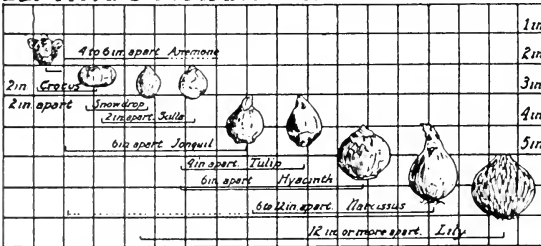 1in
4 to 6 in. apart Anemone
2in
2in Crocus
3in
2 in. apart
Snowdrop
2 in apart. Scilla
4in
6 in apart Jonquil
5in
4 in apart. Tulip
6 in. apart Hyacinth
6 to 12 in. apart. Narcissus
12 in or more apart. Lily